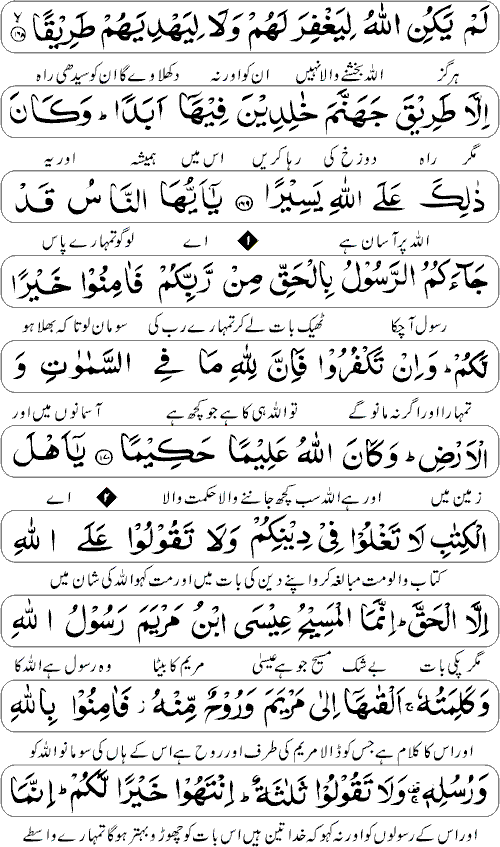 لَمْ يَكُنِ اللهُ لِيَغْفِرَ لَهُمْ وَلَا لِيَهْدِيَهُمْ طَرِيْقًا ۱۶۸
ہرگز اللہ بخشنے والا نہیں ان کو اور نہ دکھلاوے گا ان کو سیدھی راہ
اِلَّا طَرِيْقَ جَهَنَّمَ خٰلِدِيْنَ فِيْهَا اَبَدًا ؕ وَكَانَ
مگر راہ دوزخ کی رہا کریں اس میں ہمیشہ اور یہ
ذٰلِكَ عَلَى اللهِ يَسِيْرًا ۱۶۹ يٰۤاَيُّهَا النَّاسُ قَدْ
اللہ پر آسان ہے ۱ اے لوگو تمہارے پاس
جَآءَكُمُ الرَّسُوْلُ بِالْحَقِّ مِنْ رَّبِّكُمْ فَاٰمِنُوْا خَيْرًا
رسول آچکا ٹھیک بات لے کر تمہارے رب کی سو مان لو تاکہ بھلا ہو
لَّكُمْ ؕ وَاِنْ تَكْفُرُوْا فَاِنَّ لِلّٰهِ مَا فِي السَّمٰوٰتِ وَ
تمہارا اور اگر نہ مانو گے تو اللہ ہی کا ہے جو کچھ ہے آسمانوں میں اور
الْاَرْضِ ؕ وَكَانَ اللهُ عَلِيْمًا حَكِيْمًا ۱۷۰ يٰۤاَهْلَ
زمین میں اور ہے اللہ سب کچھ جاننے والا حکمت والا ۲ اے
الْكِتٰبِ لَا تَغْلُوْا فِيْ دِيْنِكُمْ وَلَا تَقُوْلُوْا عَلَى اللهِ
کتاب والو مت مبالغہ کرو اپنے دین کی بات میں اور مت کہو اللہ کی شان میں
اِلَّا الْحَقَّ ؕ اِنَّمَا الْمَسِيْحُ عِيْسَى ابْنُ مَرْيَمَ رَسُوْلُ اللهِ
مگر پکی بات بے شک مسیح جو ہے عیسٰی مریم کا بیٹا وہ رسول ہے اللہ کا
وَكَلِمَتُهٗ ۚ اَلْقٰىهَاۤ اِلٰى مَرْيَمَ وَرُوْحٌ مِّنْهُ ؗ فَاٰمِنُوْا بِاللهِ
اور اس کا کلام ہے جس کو ڈالا مریم کی طرف اور روح ہے اس کے ہاں کی سو مانو اللہ کو
وَرُسُلِهٖ ۫ وَلَا تَقُوْلُوْا ثَلٰثَةٌ ؕ اِنْتَهُوْا خَيْرًا لَّكُمْ ؕ اِنَّمَا
اور اس کے رسولوں کو اور نہ کہو کہ خدا تین ہیں اس بات کو چھوڑ و بہتر ہوگا تمہارے واسطے